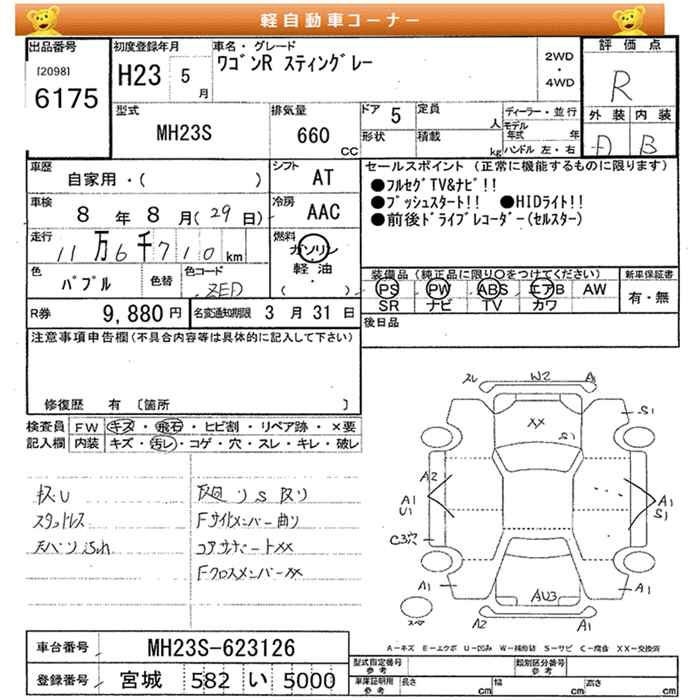 軽自動車コーナー
出品番号
[2098]
6175
初度登録年月
H23 5月
車名・グレード
ワゴンR スティングレー
2WD
・
4WD
評価点
R
外装 内装
D B
型式
MH23S
排気量
660 CC
ドア 5
形状
定員 人
積載 kg
ディーラー・並行
モデル年式 年
ハンドル 左・右
車歴
自家用・( )
シフト AT
車検
8年8月(29日)
冷房 AAC
走行
11万6千710km
燃料
ガソリン
・
軽油
( ・ )
色
パブル
色替
色コード
ZED
R券 9,880円
名変通知期限 3月31日
セールスポイント(正常に機能するものに限ります)
●フルセグTV&ナビ!!
●プッシュスタート!! ●HIDライト!!
●前後ドライブレコーダー(セルスター)
装備品(純正品に限り○をつけてください)
PS PW ABS エアB AW
SR ナビ TV カワ
新車保証書
有・無
後日品
注意事項申告欄(不具合内容等は具体的に記入して下さい)
修復歴 有 〔箇所 〕
検査員記入欄
FW キズ・飛石・ヒビ割・リペア跡・×要
内装 キズ・汚レ・コゲ・穴・スレ・キレ・破レ
スタッドレス
Fサイドメンバー曲り
コアサポートXX
FクロスメンバーXX
スレ W2 A
XX
S1
S1
A2
A1
U1
A1
S1
C3穴
A1
AU3
A1
A2
A1
A−キズ E−エクボ U−凹み W−補修跡 S−サビ C−腐食 XX−交換済
車台番号 MH23S-623126
登録番号 宮城 582 い 5000
型式指定番号 参考
類別区分番号 参考
車庫証明用 参考
長さ cm
幅 cm
高さ cm